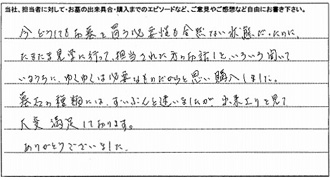 当社、担当者に対して・お墓の出来具合・購入までのエピソードなど、ご意見やご感想など自由にお書き下さい。
今どうしてもお墓を買う必要性も全然ない状態だったのに、
たまたま見学に行って、担当された方のお話しといろいろ聞いて
いるうちに、ゆくゆくは必要なものだからと思い購入しました。
墓石の種類には、ずいぶんと迷いましたが出来上りを見て
大変満足しております。
ありがとうございました。